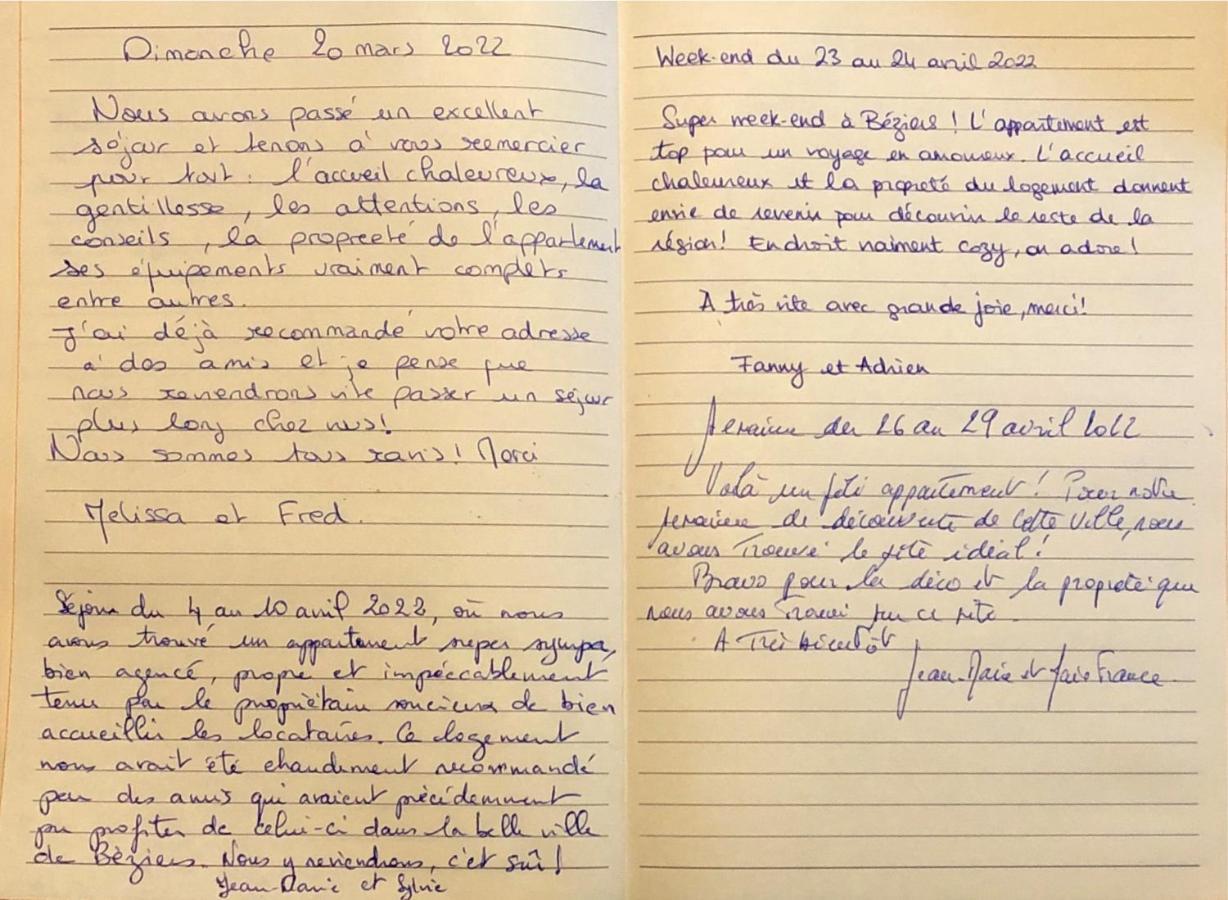 Dimanche 20 mars 2022
Nous avons passé un excellent
séjour et tenons à vous remercier
pour tout : l'accueil chaleureux, la
gentillesse, les attentions, les
conseils, la propreeté de l'appartement
ses équipements vraiment complets
entre autres.
J'ai déjà recommandé votre adresse
à des amis et je pense que
nous reviendrons vite passer un séjour
plus long chez vous!
Nous sommes tous ravis! Merci
Melissa et Fred.
Séjour du 4 au 10 avril 2022, où nous
avons trouvé un appartement super sympa,
bien agencé, propre et impéccablement
tenu par le propriétaire soucieux de bien
accueillir les locataires. Ce logement
nous avait été chaudement recommandé
par des amis qui avaient précédemment
pu profiter de celui-ci dans la belle ville
de Béziers. Nous y reviendrons, c'est sûr!
Jean-Marie et Sylvie
Week-end du 23 au 24 avril 2022
Super week-end à Béziers ! L'appartement est
top pour un voyage en amoureux. L'accueil
chaleureux et la propreté du logement donnent
envie de revenir pour découvrir le reste de la
région! Endroit vraiment cozy, on adore!
A très vite avec grande joie, merci!
Fanny et Adrien
Semaine du 26 au 29 avril 2022
Voilà un appartement! Pour notre
semaine de découverte de cette ville, nous
avons trouvé le gîte idéal!
Bravo pour la déco et la propreté que
nous avons trouvé sur ce gîte.
A Très bientôt
Jean-Marie et Marie France